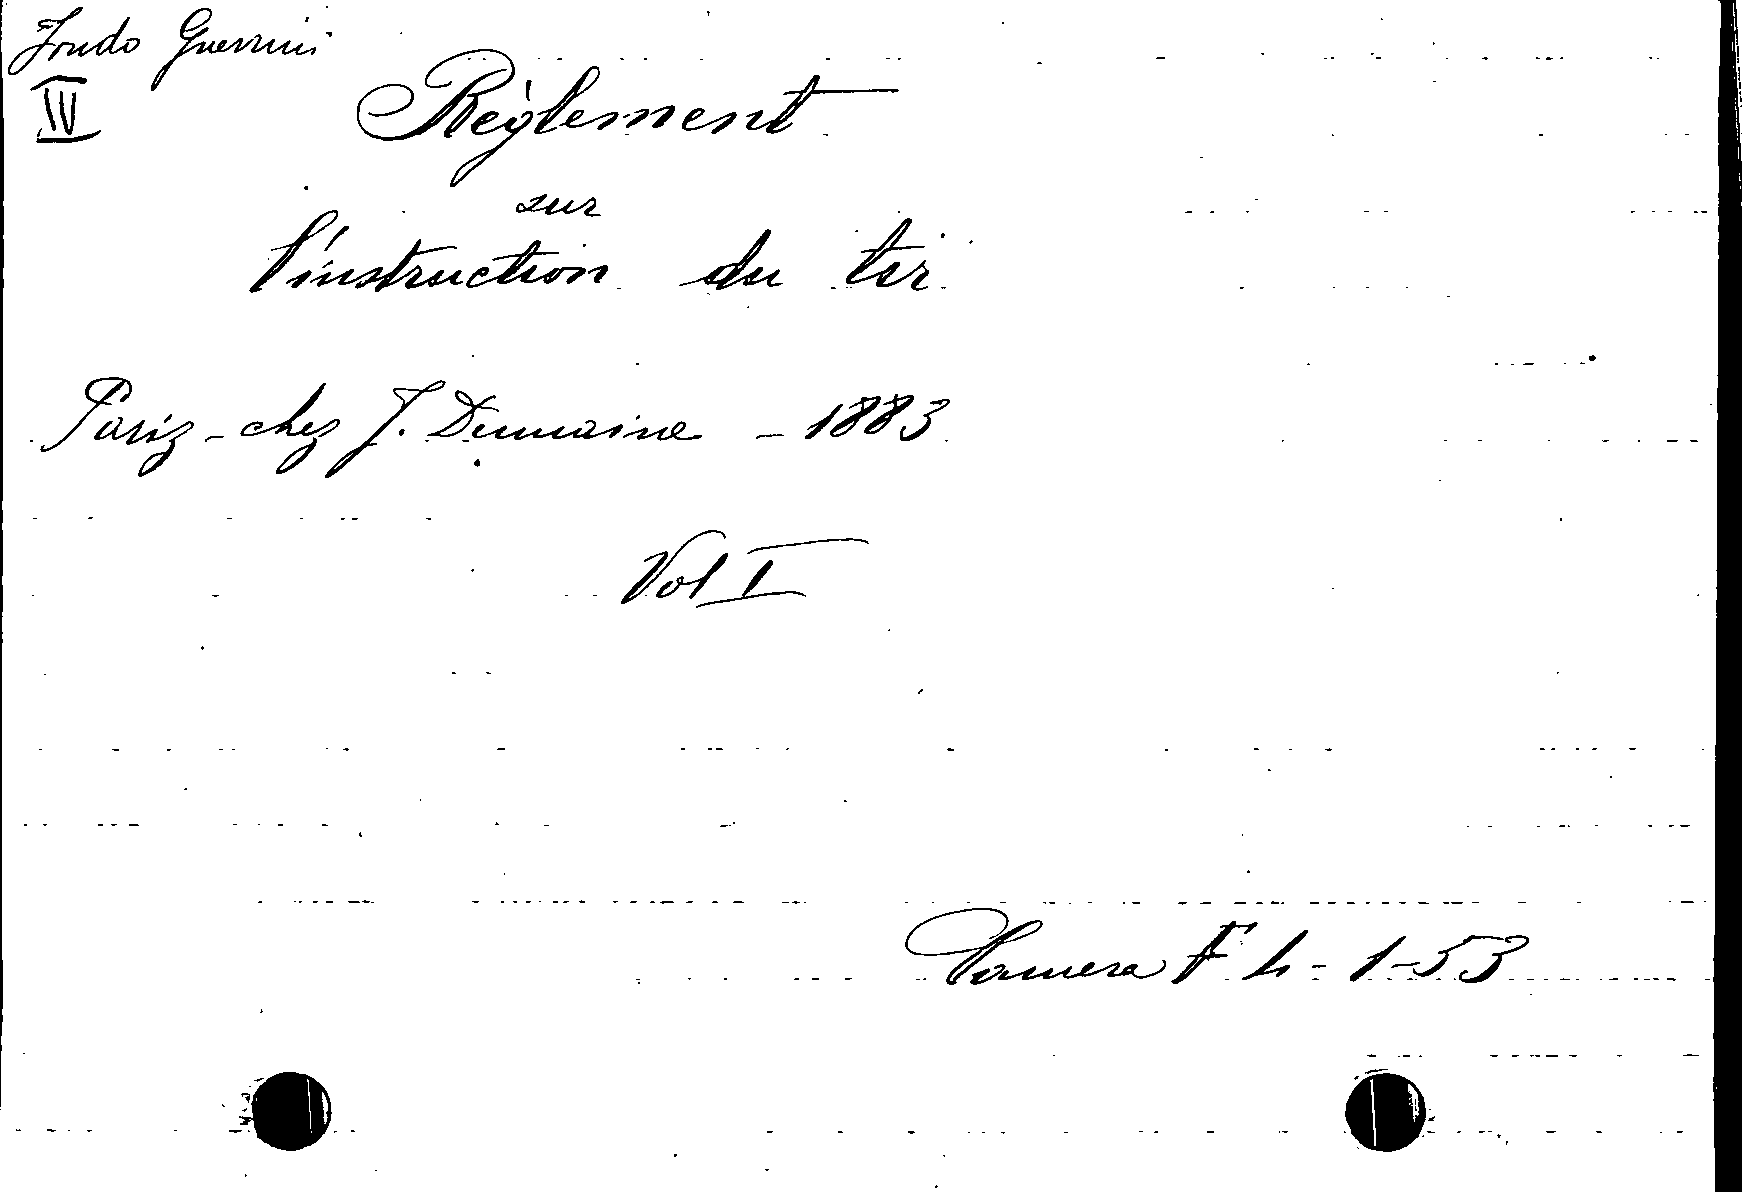 Fondo Guerrini
IV
Règlement
sur
l'instruction du tir
Pariz - chez J. Dumaine - 1883
Vol I
Camera F 4 - 1 - 53